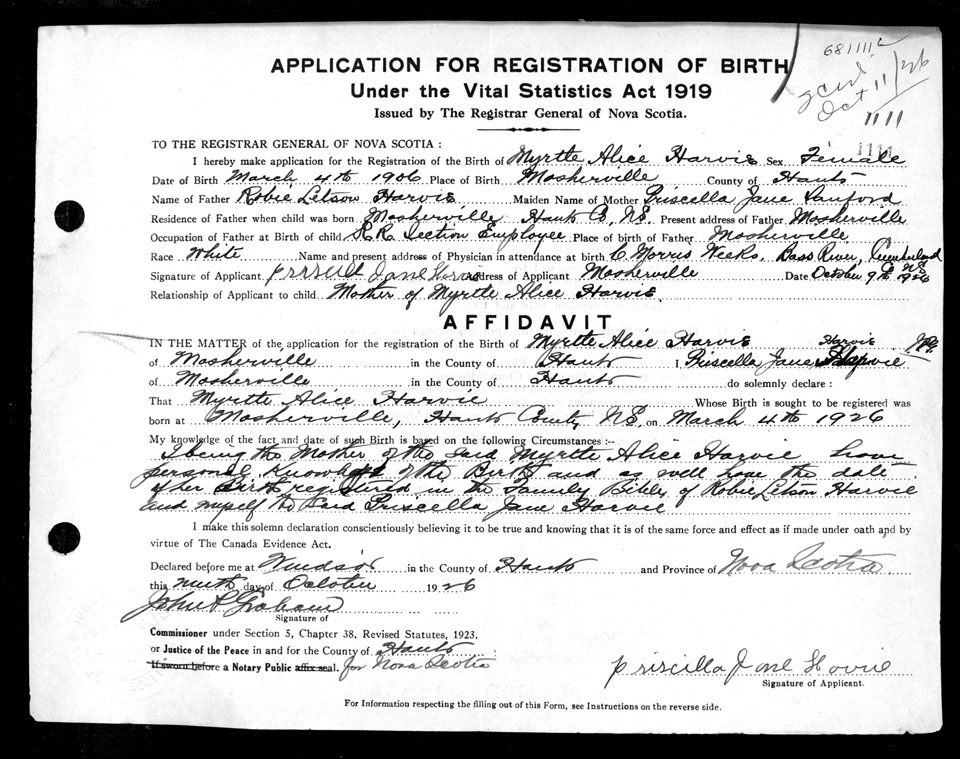 681111
Oct 11/26
1111
APPLICATION FOR REGISTRATION OF BIRTH
Under the Vital Statistics Act 1919
Issued by The Registrar General of Nova Scotia.
1111
TO THE REGISTRAR GENERAL OF NOVA SCOTIA :
I hereby make application for the Registration of the Birth of Myrtle Alice Harvie Sex Female
Date of Birth March 4th 1906 Place of Birth Mosherville County of Hants
Name of Father Robie Letson Harvie Maiden Name of Mother Priscella Jane Sanford
Residence of Father when child was born Mosherville Hants Co, NS. Present address of Father Mosherville
Occupation of Father at Birth of child R.R. Section Employee Place of birth of Father Mosherville
Race White Name and present address of Physician in attendance at birth C. Morris Weeks, Bass River, Cumberland Co NS
Signature of Applicant Jane Address of Applicant Mosherville Date October 9th 1926
Relationship of Applicant to child Mother of Myrtle Alice Harvie.
AFFIDAVIT
IN THE MATTER of the application for the registration of the Birth of Myrtle Alice Harvie Harvie
of Mosherville in the County of Hants I, Priscella Jane
of Mosherville in the County of Hants do solemnly declare :
That Myrtle Alice Harvie Whose Birth is sought to be registered was
born at Mosherville, Hants County NS, on March 4th 1926
My knowledge of the fact and date of such Birth is based on the following Circumstances :-
I being the Mother of the said Myrtle Alice Harvie have
personal knowledge of the Birth and as well have the date
of her Birth registered in the Family Bible of Robie Letson Harvie
and myself the said Priscella Jane Harvie
I make this solemn declaration conscientiously believing it to be true and knowing that it is of the same force and effect as if made under oath and by
virtue of The Canada Evidence Act.
Declared before me at Windsor in the County of Hants and Province of Nova Scotia
this ninth day of October 1926
John P Graham
Signature of
Commissioner under Section 5, Chapter 38, Revised Statutes, 1923,
or Justice of the Peace in and for the County of Hants
If sworn before a Notary Public affix seal. for Nova Scotia
Priscilla Jane Harvie
Signature of Applicant.
For Information respecting the filling out of this Form, see Instructions on the reverse side.